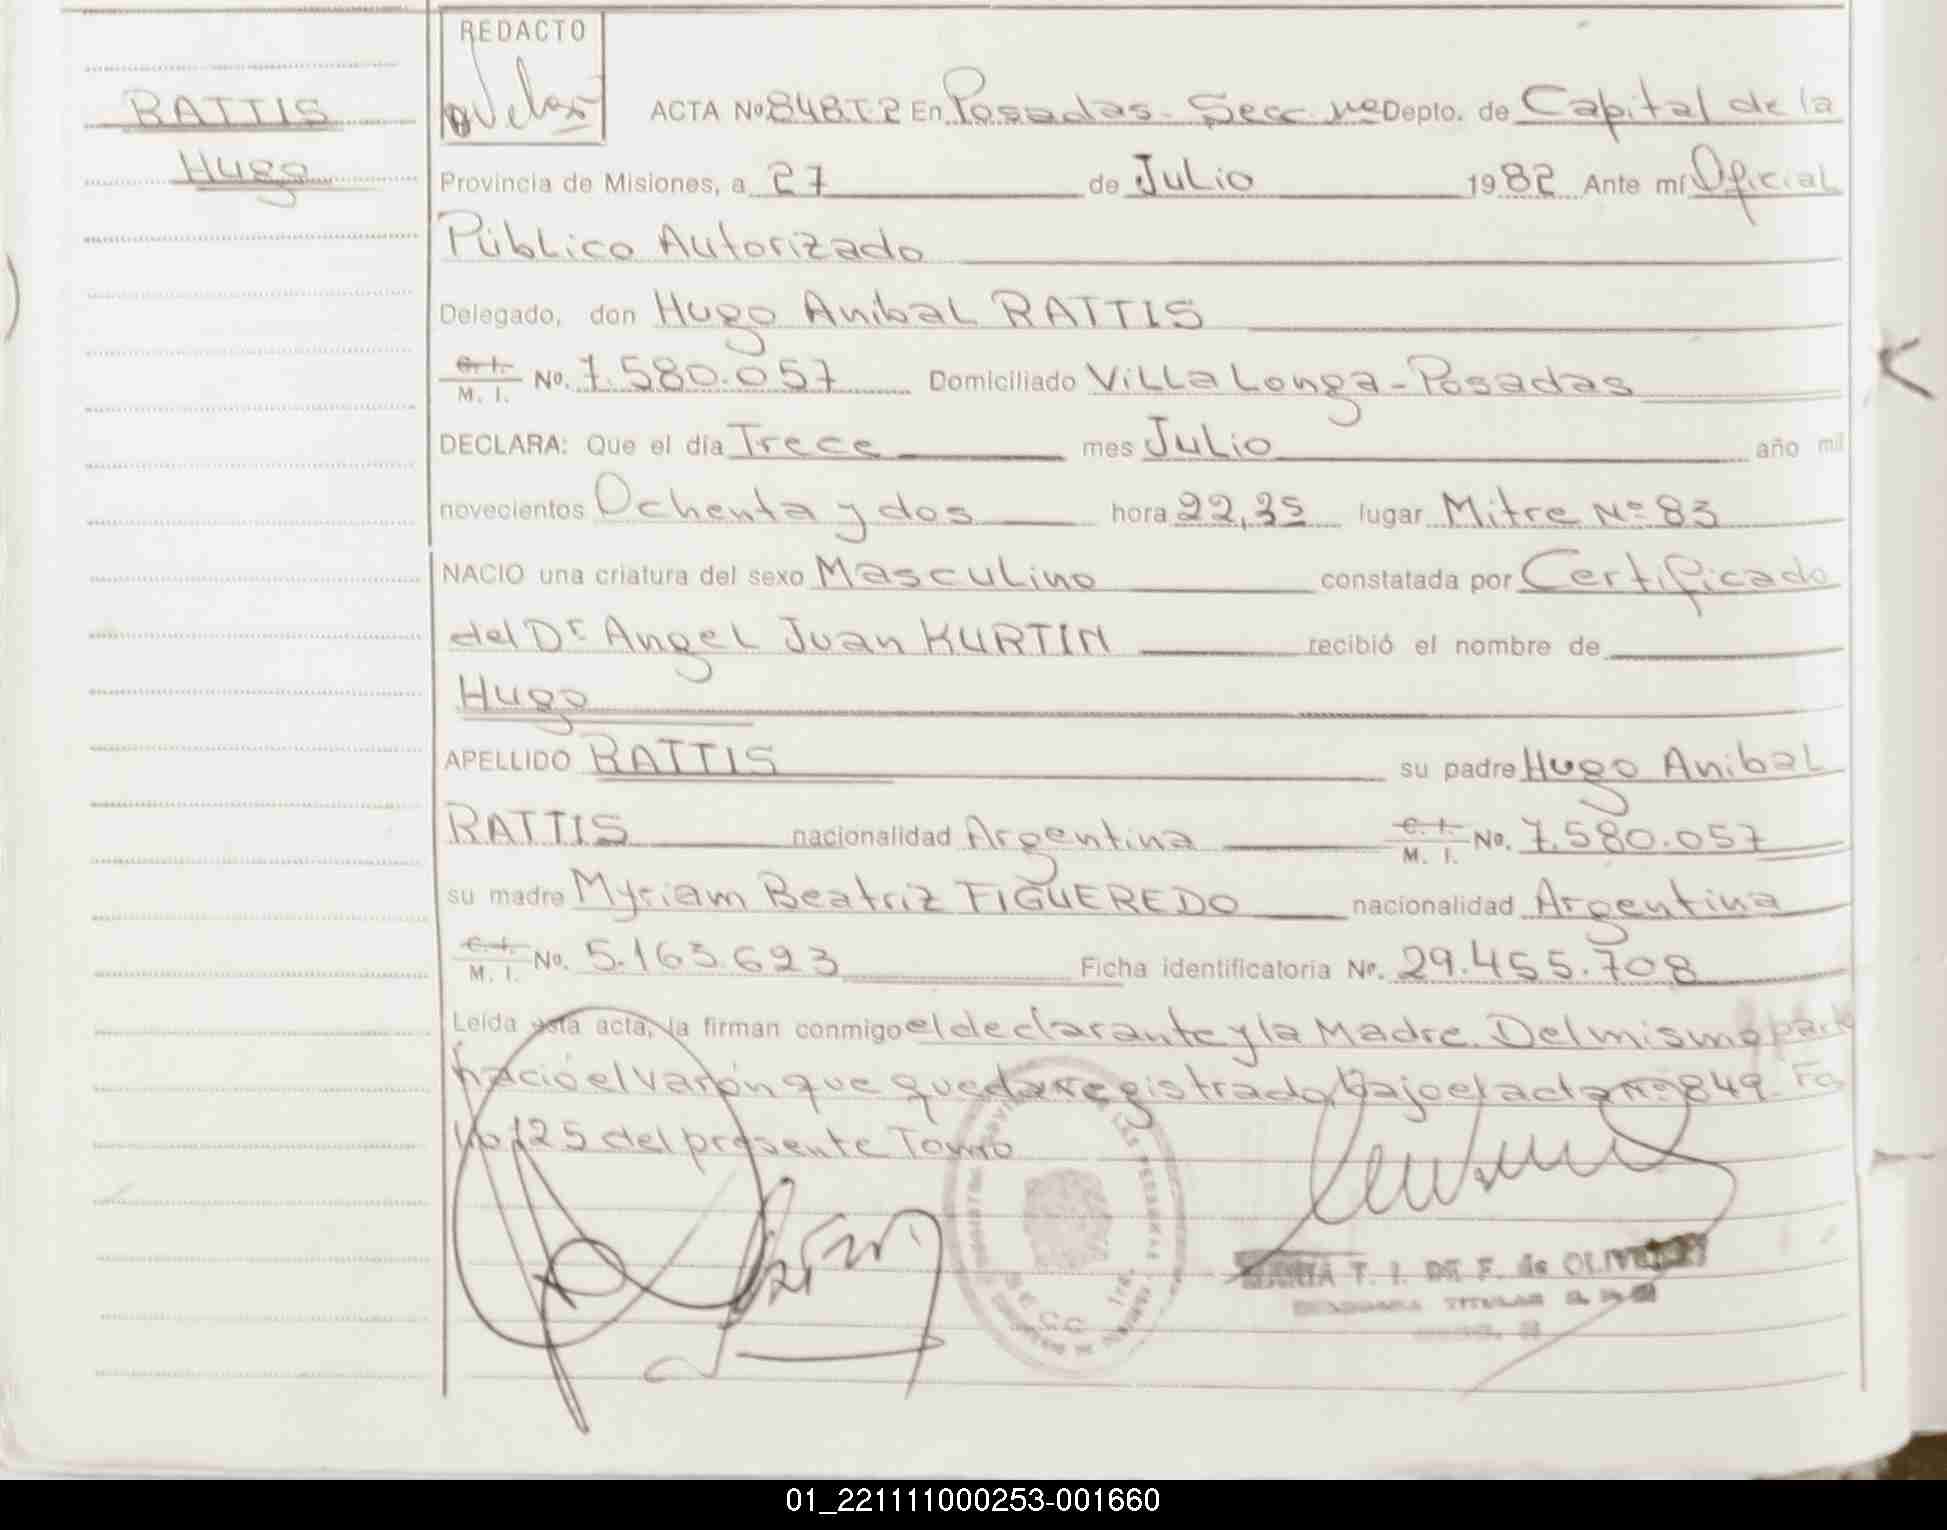 REDACTO
RATTIS
Hugo
ACTA No 848T.2 En Posadas - Secc. 1ra Depto. de Capital de la
Provincia de Misiones, a 27 de Julio 1982 Ante mí Oficial
Público Autorizado
Delegado, don Hugo Anibal RATTIS
C. I. / M. I. No. 7.580.057 Domiciliado Villa Longa - Posadas
DECLARA: Que el día Trece mes Julio año mil
novecientos Ochenta y dos hora 22,35 lugar Mitre Nº 83
NACIO una criatura del sexo Masculino constatada por Certificado
del Dr Angel Juan KURTIN recibió el nombre de
Hugo
APELLIDO RATTIS su padre Hugo Anibal
RATTIS nacionalidad Argentina C. I. / M. I. No. 7.580.057
su madre Myriam Beatriz FIGUEREDO nacionalidad Argentina
C. I. / M. I. No. 5.163.623 Ficha identificatoria Nº. 29.455.708
Leída esta acta, la firman conmigo el declarante y la Madre. Del mismo parto
nació el varón que queda registrado bajo el acta nº 849. Fo
lio 125 del presente Tomo
DE LAS PERSONAS
SECC. 1ra.
MARIA T. I. DE F. de OLIVEIRA
TITULAR
01_221111000253-001660